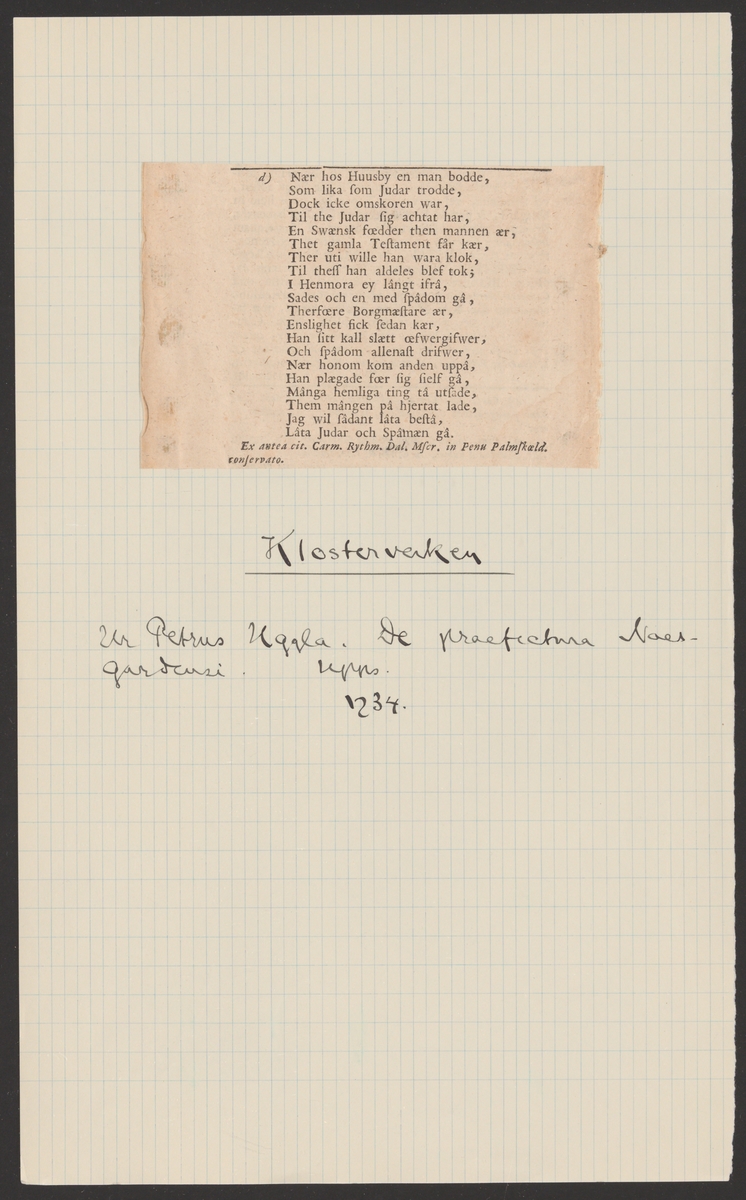 d) Nær hos Huusby en man bodde,
Som lika ſom Judar trodde,
Dock icke omskoren war,
Til the Judar ſig achtat har,
En Swænsk fœdder then mannen ær,
Thet gamla Teſtament får kær,
Ther uti wille han wara klok,
Til theſſ han aldeles blef tok;
I Henmora ey långt ifrå,
Sades och en med ſpådom gå,
Therfœre Borgmæſtare ær,
Enslighet fick ſedan kær,
Han ſitt kall slætt œfwergifwer,
Och ſpådom allenaſt drifwer,
Nær honom kom anden uppå,
Han plægade fœr ſig ſielf gå,
Många hemliga ting tå utſade,
Them mången på hjertat lade,
Jag wil ſådant låta beſtå,
Låta Judar och Spåmæn gå.
Ex antea cit. Carm. Rythm. Dal. Mſcr. in Penu Palmſkœld.
conſervato.
Klosterverken
Ur Petrus Uggla. De praefectura Naes-
gardensi. Upps.
1734.